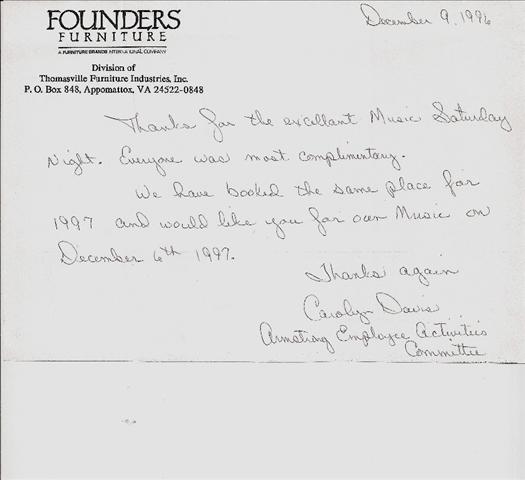 FOUNDERS
FURNITURE
A FURNITURE BRANDS INTERNATIONAL COMPANY
Division of
Thomasville Furniture Industries, Inc.
P. O. Box 848, Appomattox, VA 24522-0848
December 9, 1996
Thanks for the excellant Music Saturday
Night. Everyone was most complimentary.
We have booked the same place for
1997 and would like you for our Music on
December 6th 1997.
Thanks again
Carolyn Davis
Armstrong Employee Activities
Committee